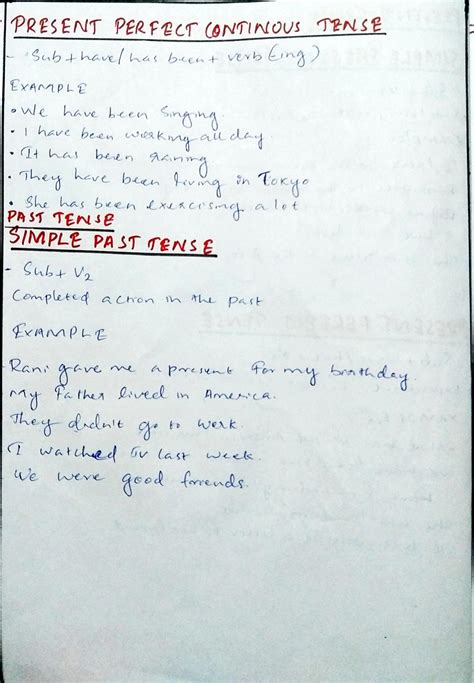 PRESENT PERFECT CONTINOUS TENSE
- Sub + have/has been + verb (ing)
EXAMPLE
• We have been Singing.
• I have been working all day.
• It has been raining
• They have been living in Tokyo
• She has been exercising a lot
PAST TENSE
SIMPLE PAST TENSE
- Sub + V2
Completed action in the past
EXAMPLE
Rani gave me a present for my birthday.
My Father lived in America.
They didn't go to work.
I watched TV last week.
We were good friends.